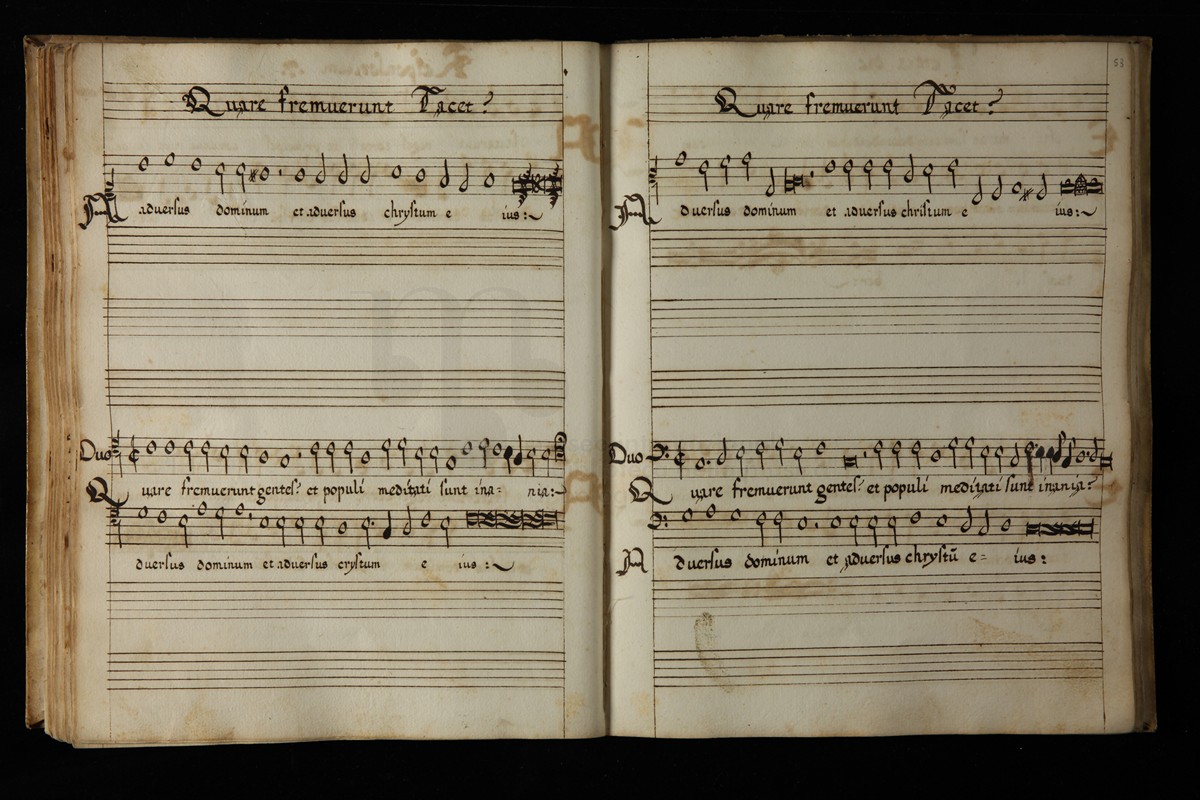 Quare fremuerunt Tacet?
Aadversus dominum et adversus chrystum e ius:~
Duo
Quare fremuerunt gentes? et populi meditati sunt ina= nia:~
dversus dominum et adversus crystum e ius:~
53
Quare fremuerunt Tacet?
Adversus dominum et adversus christum e ius:~
Duo
Quare fremuerunt gentes? et populi meditati sunt inania?
Adversus dominum et adversus chrystũ e= ius: